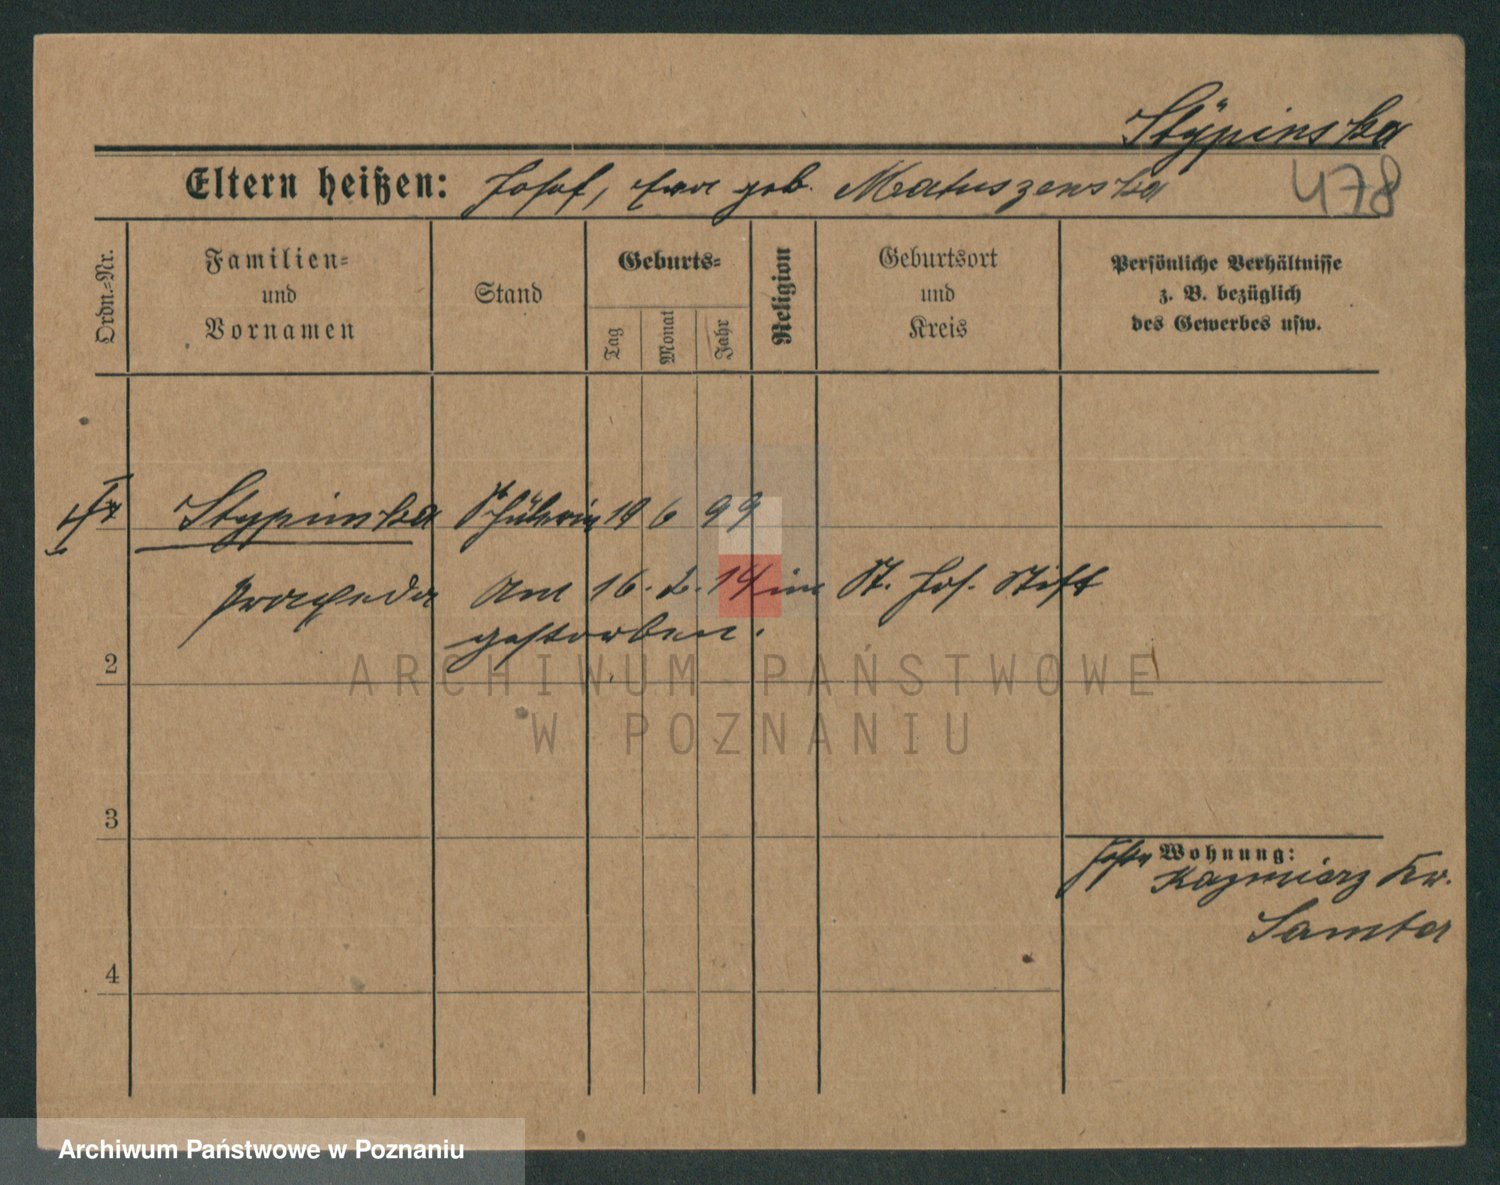 Stÿpinska
Eltern heißen: Josef, Eva geb. Matuszewska
478
Ordn.=Nr.
Familien=
und
Vornamen
Stand
Geburts=
Tag
Monat
Jahr
Religion
Geburtsort
und
Kreis
Persönliche Verhältnisse
z. B. bezüglich
des Gewerbes usw.
Stypinska Schülerin 6 99
Praxeda Am 16. 2. 14 im St. Jos. Stift
gestorben.
2
ARCHIWUM PAŃSTWOWE
W POZNANIU
3
Wohnung:
Kazmierz Kr.
Samter
4
Archiwum Państwowe w Poznaniu